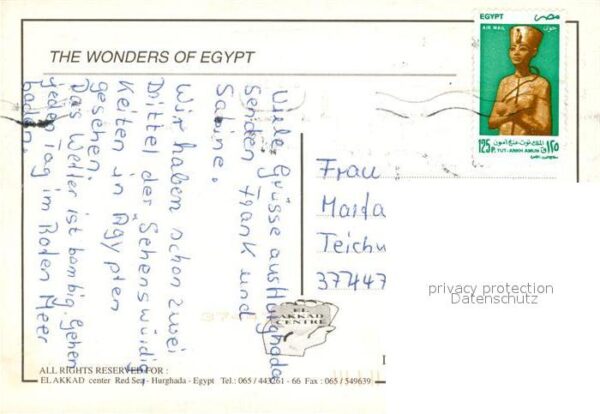 THE WONDERS OF EGYPT
EGYPT مصر
AIR MAIL
الملك توت عنخ آمون
125P. TUT-ANKH AMUN ١٢٥
Viele Grüsse aus Hurghada
senden Frank und
Sabine.
Wir haben schon zwei
Drittel der Sehenswürdig-
keiten in Ägypten
gesehen.
Das Wetter ist bombig. Gehen
jeden Tag im Roten Meer
baden.
Frau
Teichw
37447
privacy protection
Datenschutz
EL
AKKAD
CENTRE
ALL RIGHTS RESERVED FOR :
EL AKKAD center Red Sea - Hurghada - Egypt Tel.: 065 / 443261 - 66 Fax : 065 / 549639